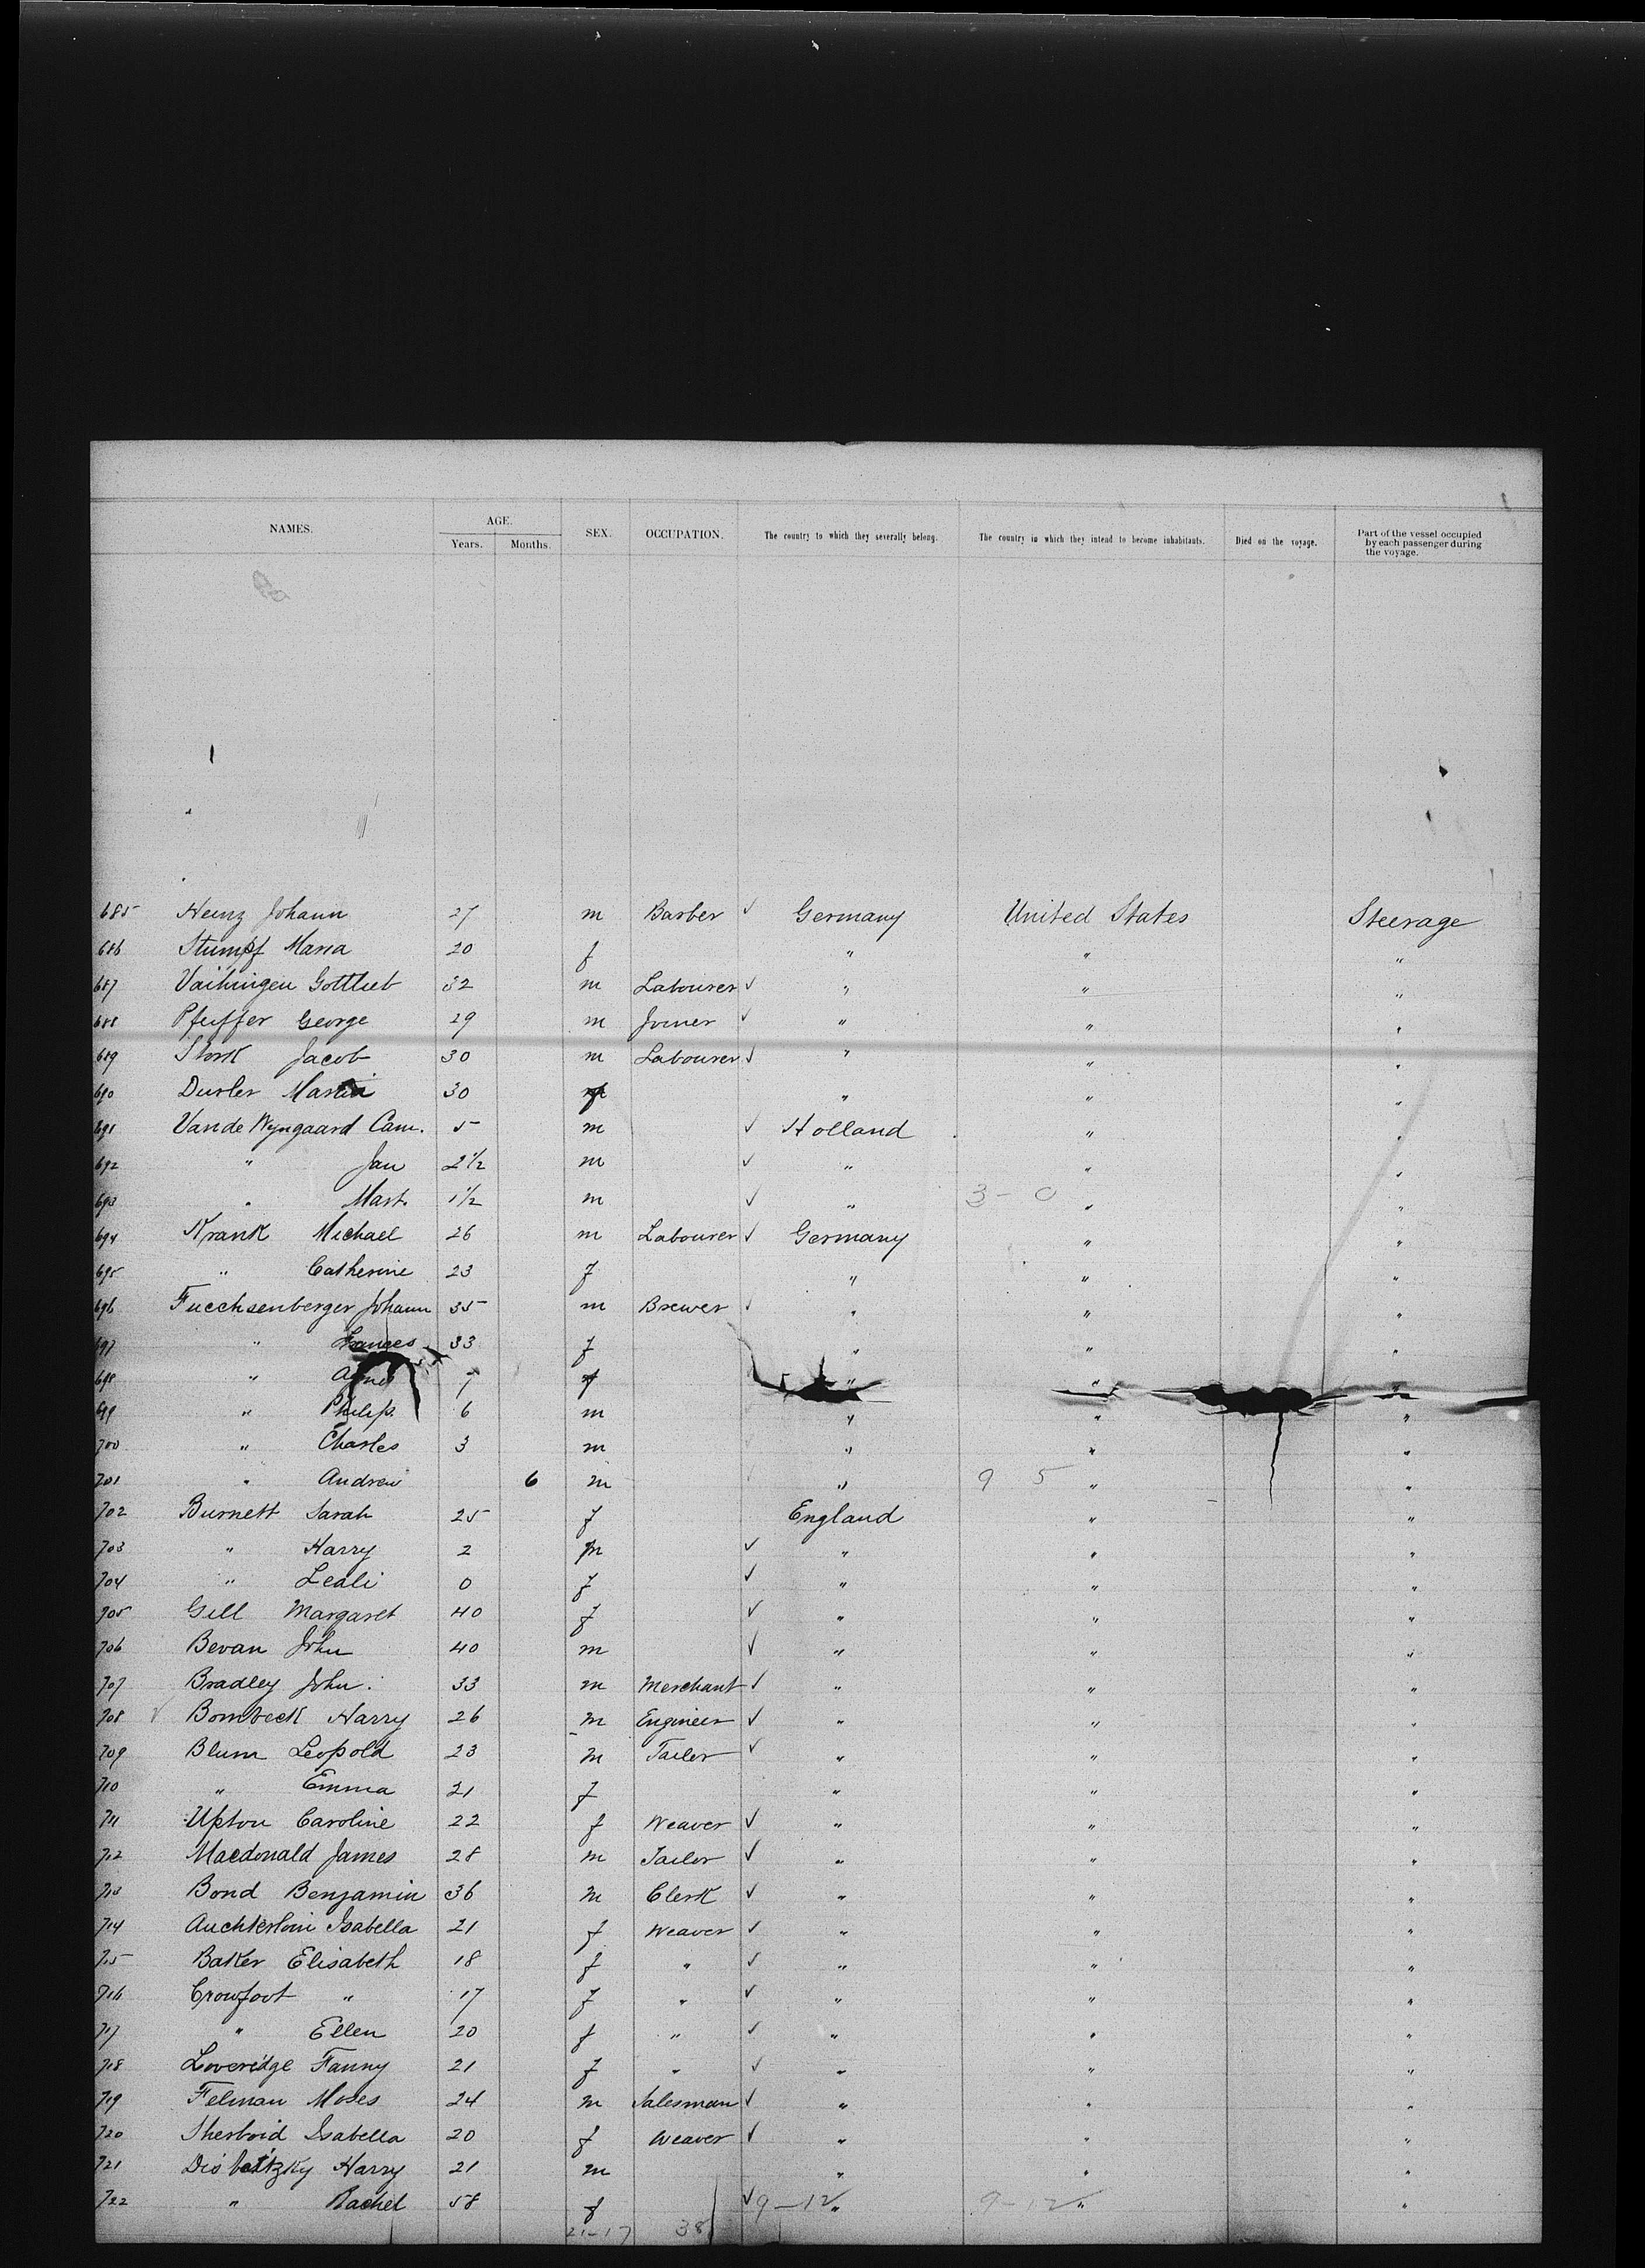 NAMES. AGE. SEX. OCCUPATION. The country to which they severally belong. The country in which they intend to become inhabitants. Died on the voyage. Part of the vessel occupied by each passenger during the voyage.
Years. Months.
685 Heinz Johann 27 m Barber ✓ Germany United States Steerage
686 Stumpf Maria 20 f " " "
687 Vaihingen Gottlieb 32 m Labourer ✓ " " "
688 Pfeiffer George 29 m Joiner ✓ " " "
689 Stork Jacob 30 m Labourer ✓ " " "
690 Dusler 30 f " " "
691 Van de Wyngaard Cam. 5 m ✓ Holland " "
692 " Jan 2½ m ✓ " " "
693 " Mart. 1½ m ✓ " 3 - 0 " "
694 Krank Michael 26 m Labourer ✓ Germany " "
695 " Catherine 23 f " " "
696 Fuechsenberger Johann 35 m Brewer ✓ " " "
697 " Frances 33 f " " "
698 " 7 f " " "
699 " Philip. 6 m " " "
700 " Charles 3 m " " "
701 " Andrew 6 m " 9 5 " "
702 Burnett Sarah 25 f England " "
703 " Harry 2 m ✓ " " "
704 " Leali 0 f ✓ " " "
705 Gill Margaret 40 f ✓ " " "
706 Bevan John 40 m ✓ " " "
707 Bradley John. 33 m Merchant ✓ " " "
708 ✓ Bombeck Harry 26 m Engineer ✓ " " "
709 Blum Leopold 23 m Tailor ✓ " " "
710 " Emma 21 f " " "
711 Upton Caroline 22 f Weaver ✓ " " "
712 Macdonald James 28 m Tailor ✓ " " "
713 Bond Benjamin 36 m Clerk ✓ " " "
714 Auchterloni Isabella 21 f Weaver ✓ " " "
715 Baker Elisabeth 18 f " ✓ " " "
716 Crowfoot " 17 f " ✓ " " "
717 " Ellen 20 f " ✓ " " "
718 Loveridge Fanny 21 f " ✓ " " "
719 Felman Moses 24 m Salesman ✓ " " "
720 Isabella 20 f Weaver ✓ " " "
721 Harry 21 m " " "
722 " Rachel 58 f ✓ 9 - 12 " 9 - 12 " "
21-17 38